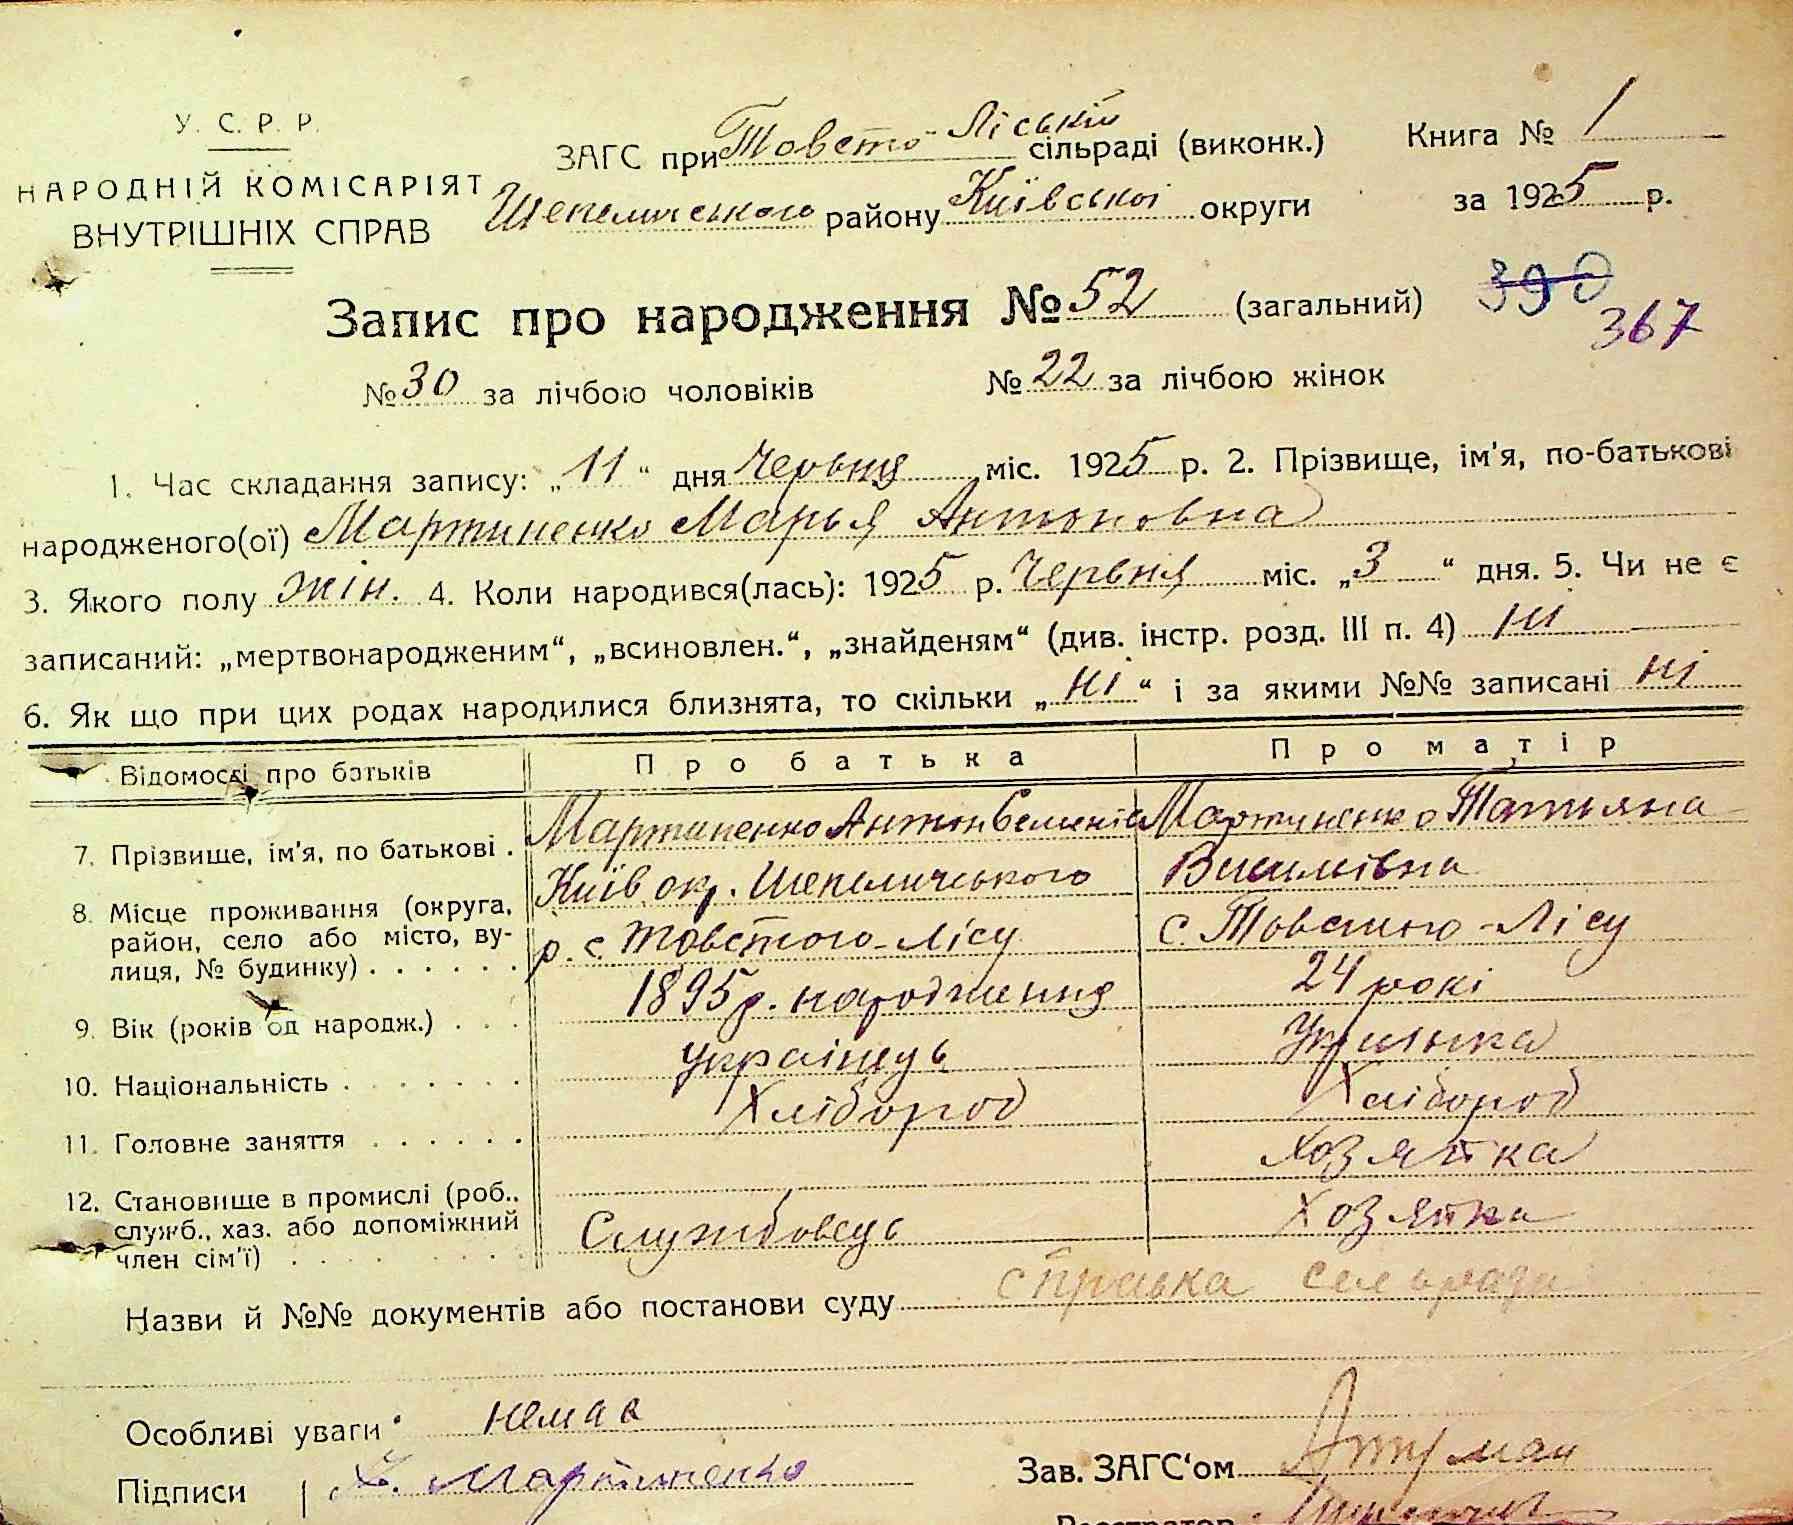 У. С. Р. Р.
НАРОДНІЙ КОМІСАРІЯТ
ВНУТРІШНІХ СПРАВ
ЗАГС при Товсто-Ліській сільраді (виконк.)
Шепеличського району Київської округи
Книга № 1
за 1925 р.
Запис про народження № 52 (загальний)
390
367
№ 30 за лічбою чоловіків № 22 за лічбою жінок
1. Час складання запису: „11“ дня Червня міс. 1925 р. 2. Прізвище, ім'я, по-батькові
народженого(ої) Мартиненко Марья Антоновна
3. Якого полу жін. 4. Коли народився(лась): 1925 р. Червня міс. „3“ дня. 5. Чи не є
записаний: „мертвонародженим“, „всиновлен.“, „знайденям“ (див. інстр. розд. III п. 4) ні
6. Як що при цих родах народилися близнята, то скільки „ні“ і за якими №№ записані ні
Відомості про батьків Про батька Про матір
7. Прізвище, ім'я, по батькові . Мартиненко Антон Мартиненко Татьяна
Василівна
8. Місце проживання (округа, Київ. окр. Шепеличського
район, село або місто, ву- р. с. Товстого-Лісу с. Товстого-Лісу
лиця, № будинку) . . . . . .
9. Вік (років од народж.) . . . 1895 р. народження 24 рокі
10. Національність . . . . . . . українець Українка
11. Головне заняття . . . . . . Хлібороб Хлібороб
Хозяйка
12. Становище в промислі (роб.,
служб., хаз. або допоміжний Службовець Хозяйка
член сім'ї) . . . . . . .
Назви й №№ документів або постанови суду справка сельради
Особливі уваги немає
Підписи Мартиненко Зав. ЗАГС‘ом
Реєстратор